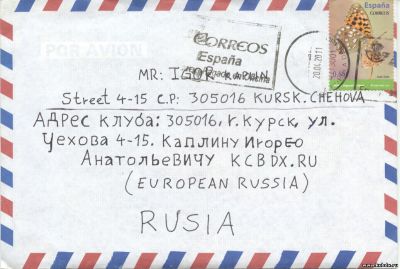 POR AVION
CORREOS
España
España
CORREOS
20.04.2011
MR: IGOR KAPLIN
Street 4-15 C.P: 305016 KURSK. CHEHOVA
АДРЕС КЛУБА: 305016, г. КУРСК, ул.
ЧЕХОВА 4-15. КАПЛИНУ Игорю
АНАТОЛЬЕВИЧУ KCBDX.RU
(EUROPEAN RUSSIA)
RUSIA